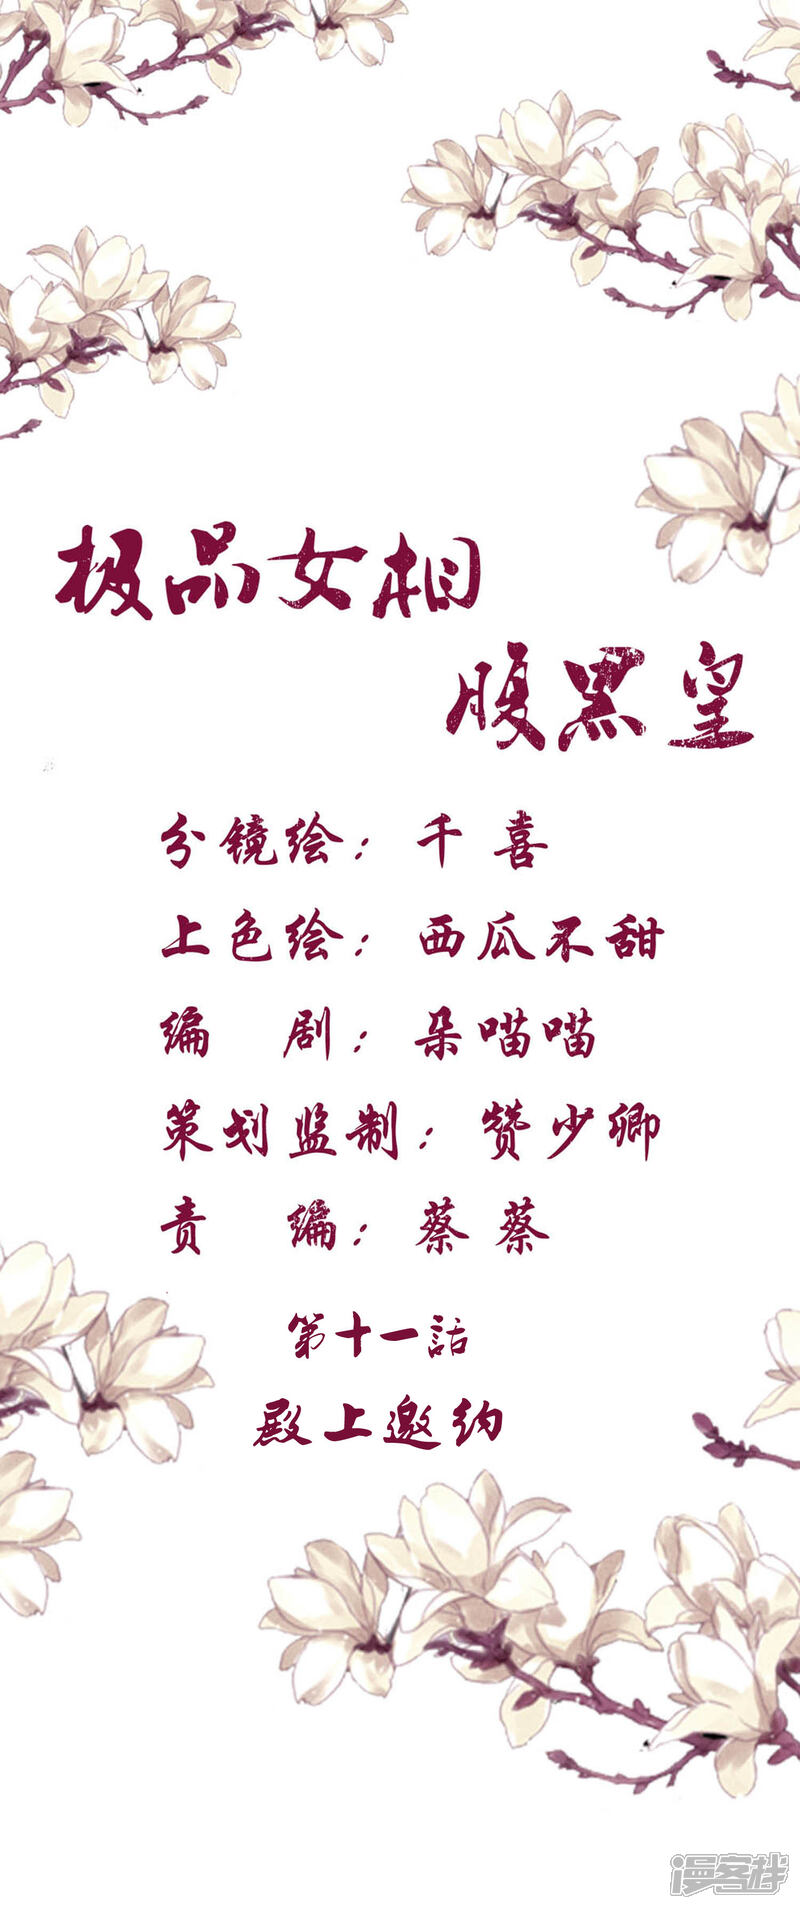 极品女相
腹黑皇
分镜绘：千喜
上色绘：西瓜不甜
编剧：朵喵喵
策划监制：赞少卿
责编：蔡蔡
第十一話
殿上邀约
漫客栈